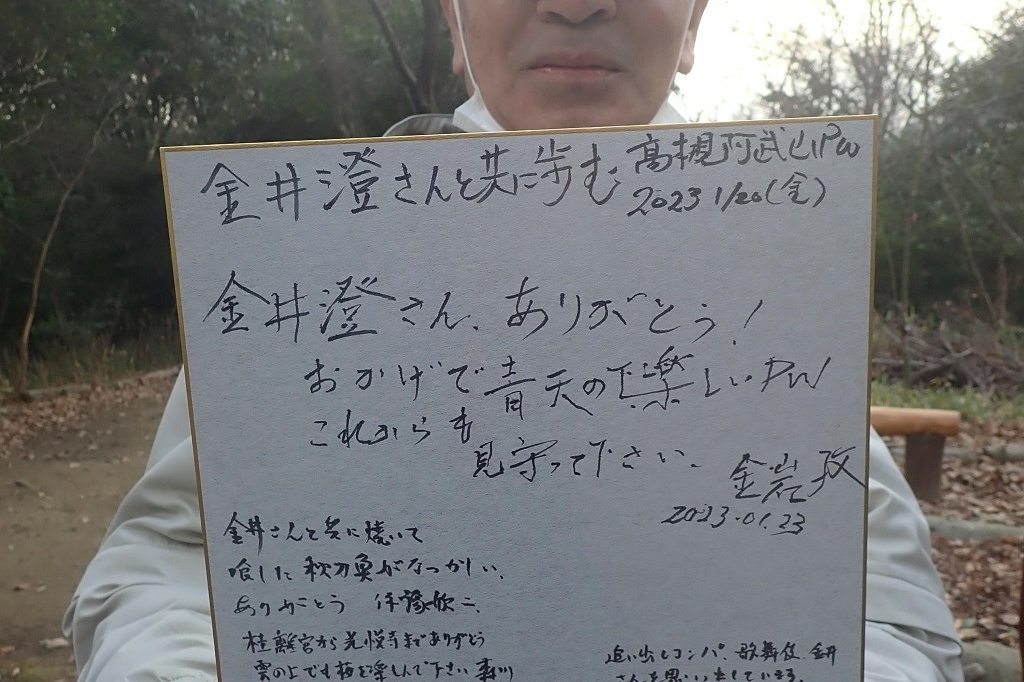 金井澄さんと共に歩む 高槻阿武山PW
2023 1/20(金)
金井澄さん、ありがとう!
おかげで青天の下楽しいPW
これからも
見守って下さい。
金岩 孜
2023.01.23
金井さんと共に焼いて
喰した秋刀魚がなつかしい、
ありがとう 伊藤欣二、
桂離宮から光悦寺までありがとう
雲の上でも梅を楽しんで下さい 森川
追い出しコンパ、歌舞伎、金井
さんを思い出しています。